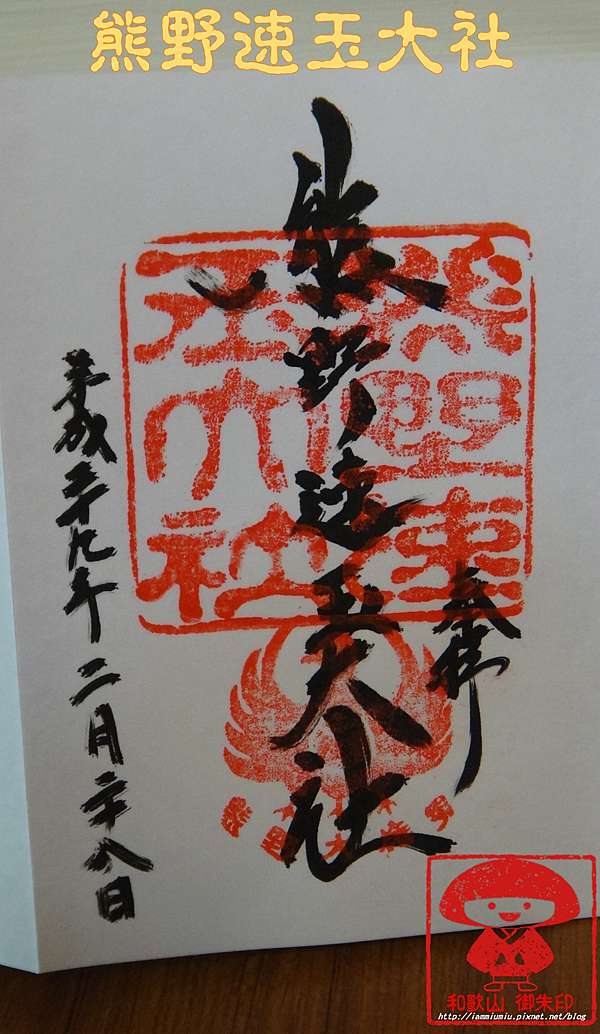 熊野速玉大社
奉拝
熊野速玉大社
平成二十九年二月二十八日
熊野速
玉大社
和歌山 御朱印
http://iammiumiu.pixnet.net/blog